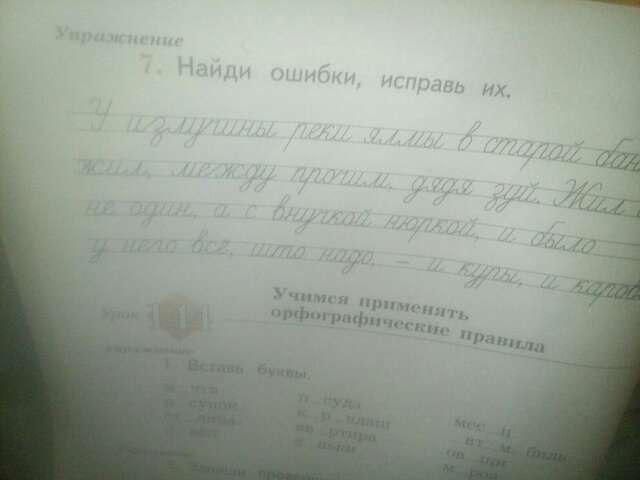 Упражнение
7. Найди ошибки, исправь их.
У излушины реки ялмы в старой бан
жил, между прочим, дядя зуй. Жил
не один, а с внучкой нюркой, и было
у него всё, што надо, – и куры, и каров
Учимся применять
Урок 114 орфографические правила
Упражнение
1. Вставь буквы.
п...суда мес...ц
р...сунок к...р...ндаш